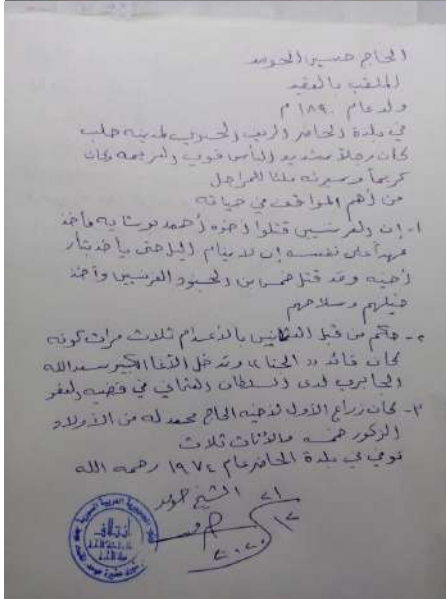 الحاج حسين الحويد
الملقب بالعقيد
ولد عام ١٨٩٠ م
في بلدة الحاضر الريف الجنوبي لمدينة حلب
كان رجلاً شديد البأس قوي العزيمة وكان
كريماً وسيرته ملئا المراجل
من أهم المواقف في حياته
١- إن الفرنسيين قتلوا أخوه أحمد فأخذ
عهداً على نفسه إن لا ينام البلد حتى يأخذ بثأر
أخيه وقد قتل خمس من الجنود الفرنسيين وأخذ
خيلهم وسلاحهم
٢- حكم من قبل العثمانيين بالأعدام ثلاث مرات كونه
كان قائد وتدخل الآغا الكبير سعد الله
الجابري لدى السلطان العثماني في قضيه العفو
٣- كان زراع الأول لأخيه الحاج محمد له من الأولاد
الذكور خمسه والأناث ثلاث
توفي في بلدة الحاضر عام ١٩٧٤ رحمه الله
الشيخ حويد
٢١
١٢
٢٠٢٠
الجمهورية العربية السورية